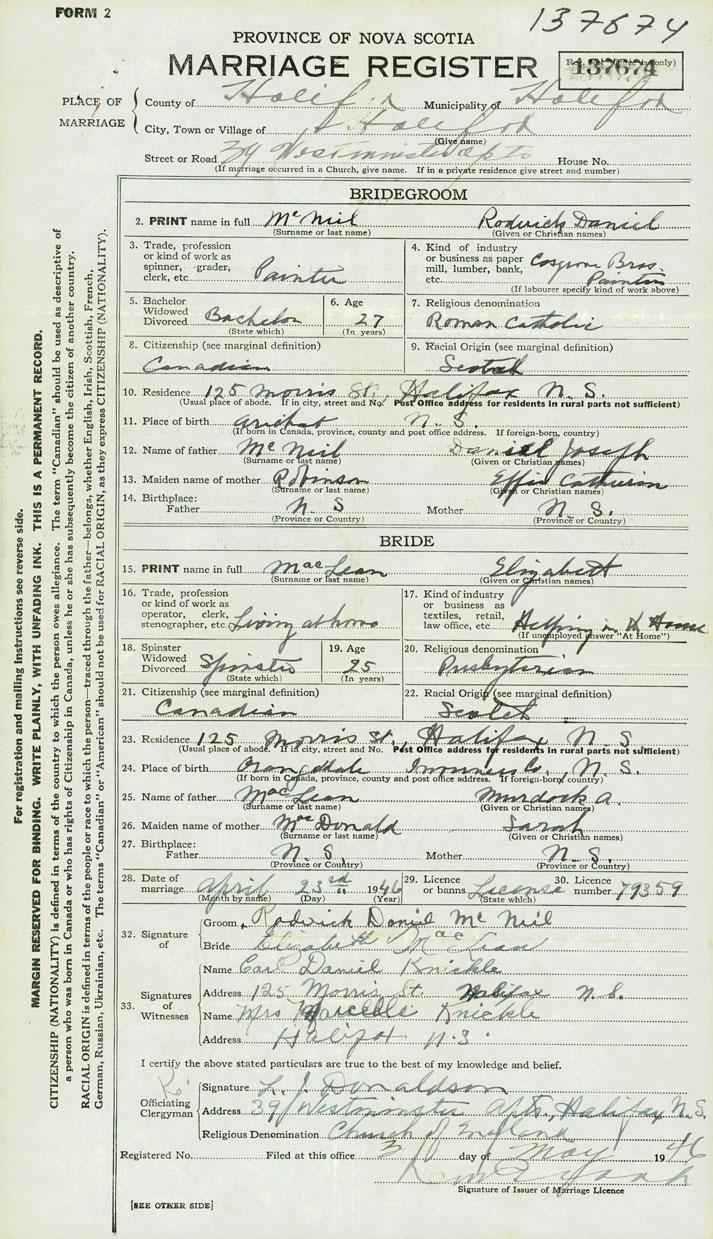 FORM 2
137674
PROVINCE OF NOVA SCOTIA
MARRIAGE REGISTER
137674
PLACE OF MARRIAGE
County of Halifax Municipality of Halifax
City, Town or Village of Halifax
(Give name)
Street or Road 39 Westminster Apts House No.
(If marriage occurred in a Church, give name. If in a private residence give street and number)
BRIDEGROOM
2. PRINT name in full McNeil Roderick Daniel
(Surname or last name) (Given or Christian names)
3. Trade, profession or kind of work as spinner, grader, clerk, etc. Painter
4. Kind of industry or business as paper mill, lumber, bank, etc. Cosgrove Bros. Painters
(If labourer specify kind of work above)
5. Bachelor Widowed Divorced Bachelor
(State which)
6. Age 27
(In years)
7. Religious denomination
Roman Catholic
8. Citizenship (see marginal definition)
Canadian
9. Racial Origin (see marginal definition)
Scotch
10. Residence 125 Morris St., Halifax N. S.
(Usual place of abode. If in city, street and No. Post Office address for residents in rural parts not sufficient)
11. Place of birth Arichat N. S.
(If born in Canada, province, county and post office address. If foreign-born, country)
12. Name of father McNeil Daniel Joseph
(Surname or last name) (Given or Christian names)
13. Maiden name of mother Robinson Effie
(Surname or last name) (Given or Christian names)
14. Birthplace:
Father N. S Mother N. S.
(Province or Country) (Province or Country)
BRIDE
15. PRINT name in full MacLean Elizabeth
(Surname or last name) (Given or Christian names)
16. Trade, profession or kind of work as operator, clerk, stenographer, etc. Living at home
17. Kind of industry or business as textiles, retail, law office, etc. Helping in the House
(If unemployed answer "At Home")
18. Spinster Widowed Divorced Spinster
(State which)
19. Age 25
(In years)
20. Religious denomination
Presbyterian
21. Citizenship (see marginal definition)
Canadian
22. Racial Origin (see marginal definition)
Scotch
23. Residence 125 Morris St., Halifax N. S.
(Usual place of abode. If in city, street and No. Post Office address for residents in rural parts not sufficient)
24. Place of birth Orangedale Inverness Co., N. S.
(If born in Canada, province, county and post office address. If foreign-born, country)
25. Name of father MacLean Murdock A.
(Surname or last name) (Given or Christian names)
26. Maiden name of mother MacDonald Sarah
(Surname or last name) (Given or Christian names)
27. Birthplace:
Father N. S. Mother N. S.
(Province or Country) (Province or Country)
28. Date of marriage April 23rd 1946
(Month by name) (Day) (Year)
29. Licence or banns License
(State which)
30. Licence number 79359
32. Signature of
Groom Roderick Daniel McNeil
Bride Elizabeth MacLean
33. Signatures of Witnesses
Name Carl Daniel Knickle
Address 125 Morris St. Halifax N.S.
Name Mrs Marcelle Knickle
Address Halifax N.S.
I certify the above stated particulars are true to the best of my knowledge and belief.
Officiating Clergyman
Signature L. J. Donaldson
Address 39 Westminster Apts, Halifax N.S.
Religious Denomination Church of England
Registered No. Filed at this office 3 day of May 1946
Signature of Issuer of Marriage Licence
[SEE OTHER SIDE]
For registration and mailing instructions see reverse side.
MARGIN RESERVED FOR BINDING. WRITE PLAINLY, WITH UNFADING INK. THIS IS A PERMANENT RECORD.
CITIZENSHIP (NATIONALITY) is defined in terms of the country to which the person owes allegiance. The term "Canadian" should be used as descriptive of
a person who was born in Canada or who has rights of Citizenship in Canada, unless he or she has subsequently become the citizen of another country.
RACIAL ORIGIN is defined in terms of the people or race to which the person—traced through the father—belongs, whether English, Irish, Scottish, French,
German, Russian, Ukrainian, etc. The terms "Canadian" or "American" should not be used for RACIAL ORIGIN, as they express CITIZENSHIP (NATIONALITY).